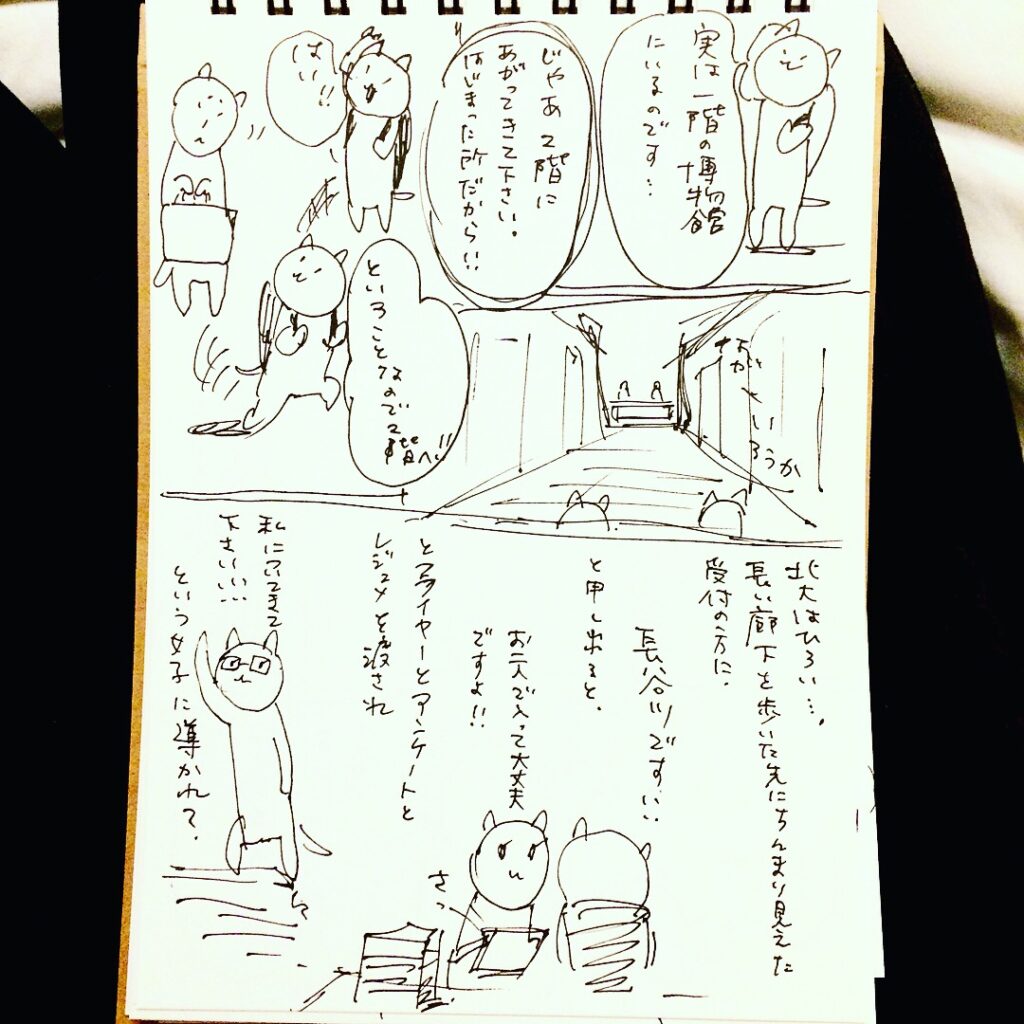 実は一階の博物館
にいるのです…
じゃあ2階に
あがってきて下さい。
はじまった所だから!!
はい!!
ろうか
ということなので2階へ!!
北大はひろい…。
長い廊下を歩いた先にちんまり見えた
受付の方に、
長谷川です…
と申し出ると、
お二人で入って大丈夫
ですよ!!
とフライヤーとアンケートと
レジュメを渡され
さっ
私についてきて
下さい…
という女子に導かれて、